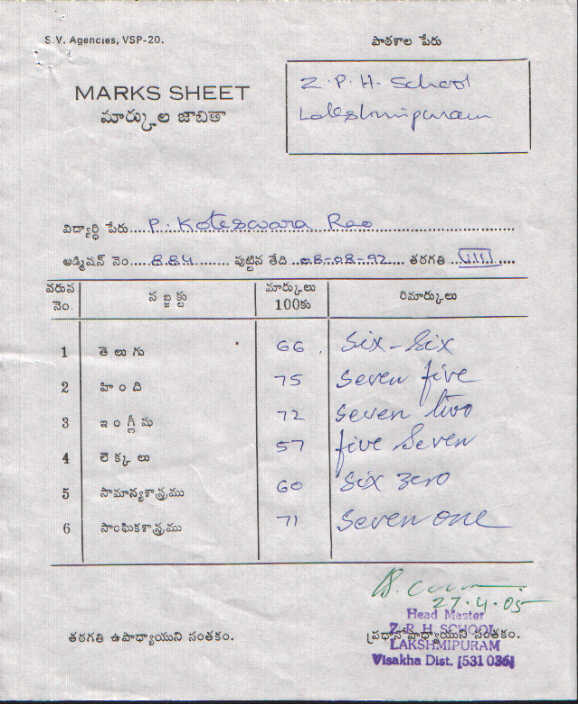 S.V. Agencies, VSP-20.
పాఠశాల పేరు
MARKS SHEET
మార్కుల జాబితా
Z.P.H. School
Lakshmipuram
విద్యార్థి పేరు.... P. Koteswara Rao
అడ్మిషన్ నెం ....884........ పుట్టిన తేది ..08-08-92.... తరగతి ..VIII....
వరుస నెం. సబ్జక్టు మార్కులు 100కు రిమార్కులు
1 తెలుగు 66 Six-Six
2 హింది 75 Seven five
3 ఇంగ్లీషు 72 Seven two
4 లెక్కలు 57 five Seven
5 సామాన్యశాస్త్రము 60 Six zero
6 సాంఘికశాస్త్రము 71 Seven one
27.4.05
తరగతి ఉపాధ్యాయుని సంతకం.
ప్రధానోపాధ్యాయుని సంతకం.
Head Master
Z.P.H SCHOOL
LAKSHMIPURAM
Visakha Dist. [531 036]